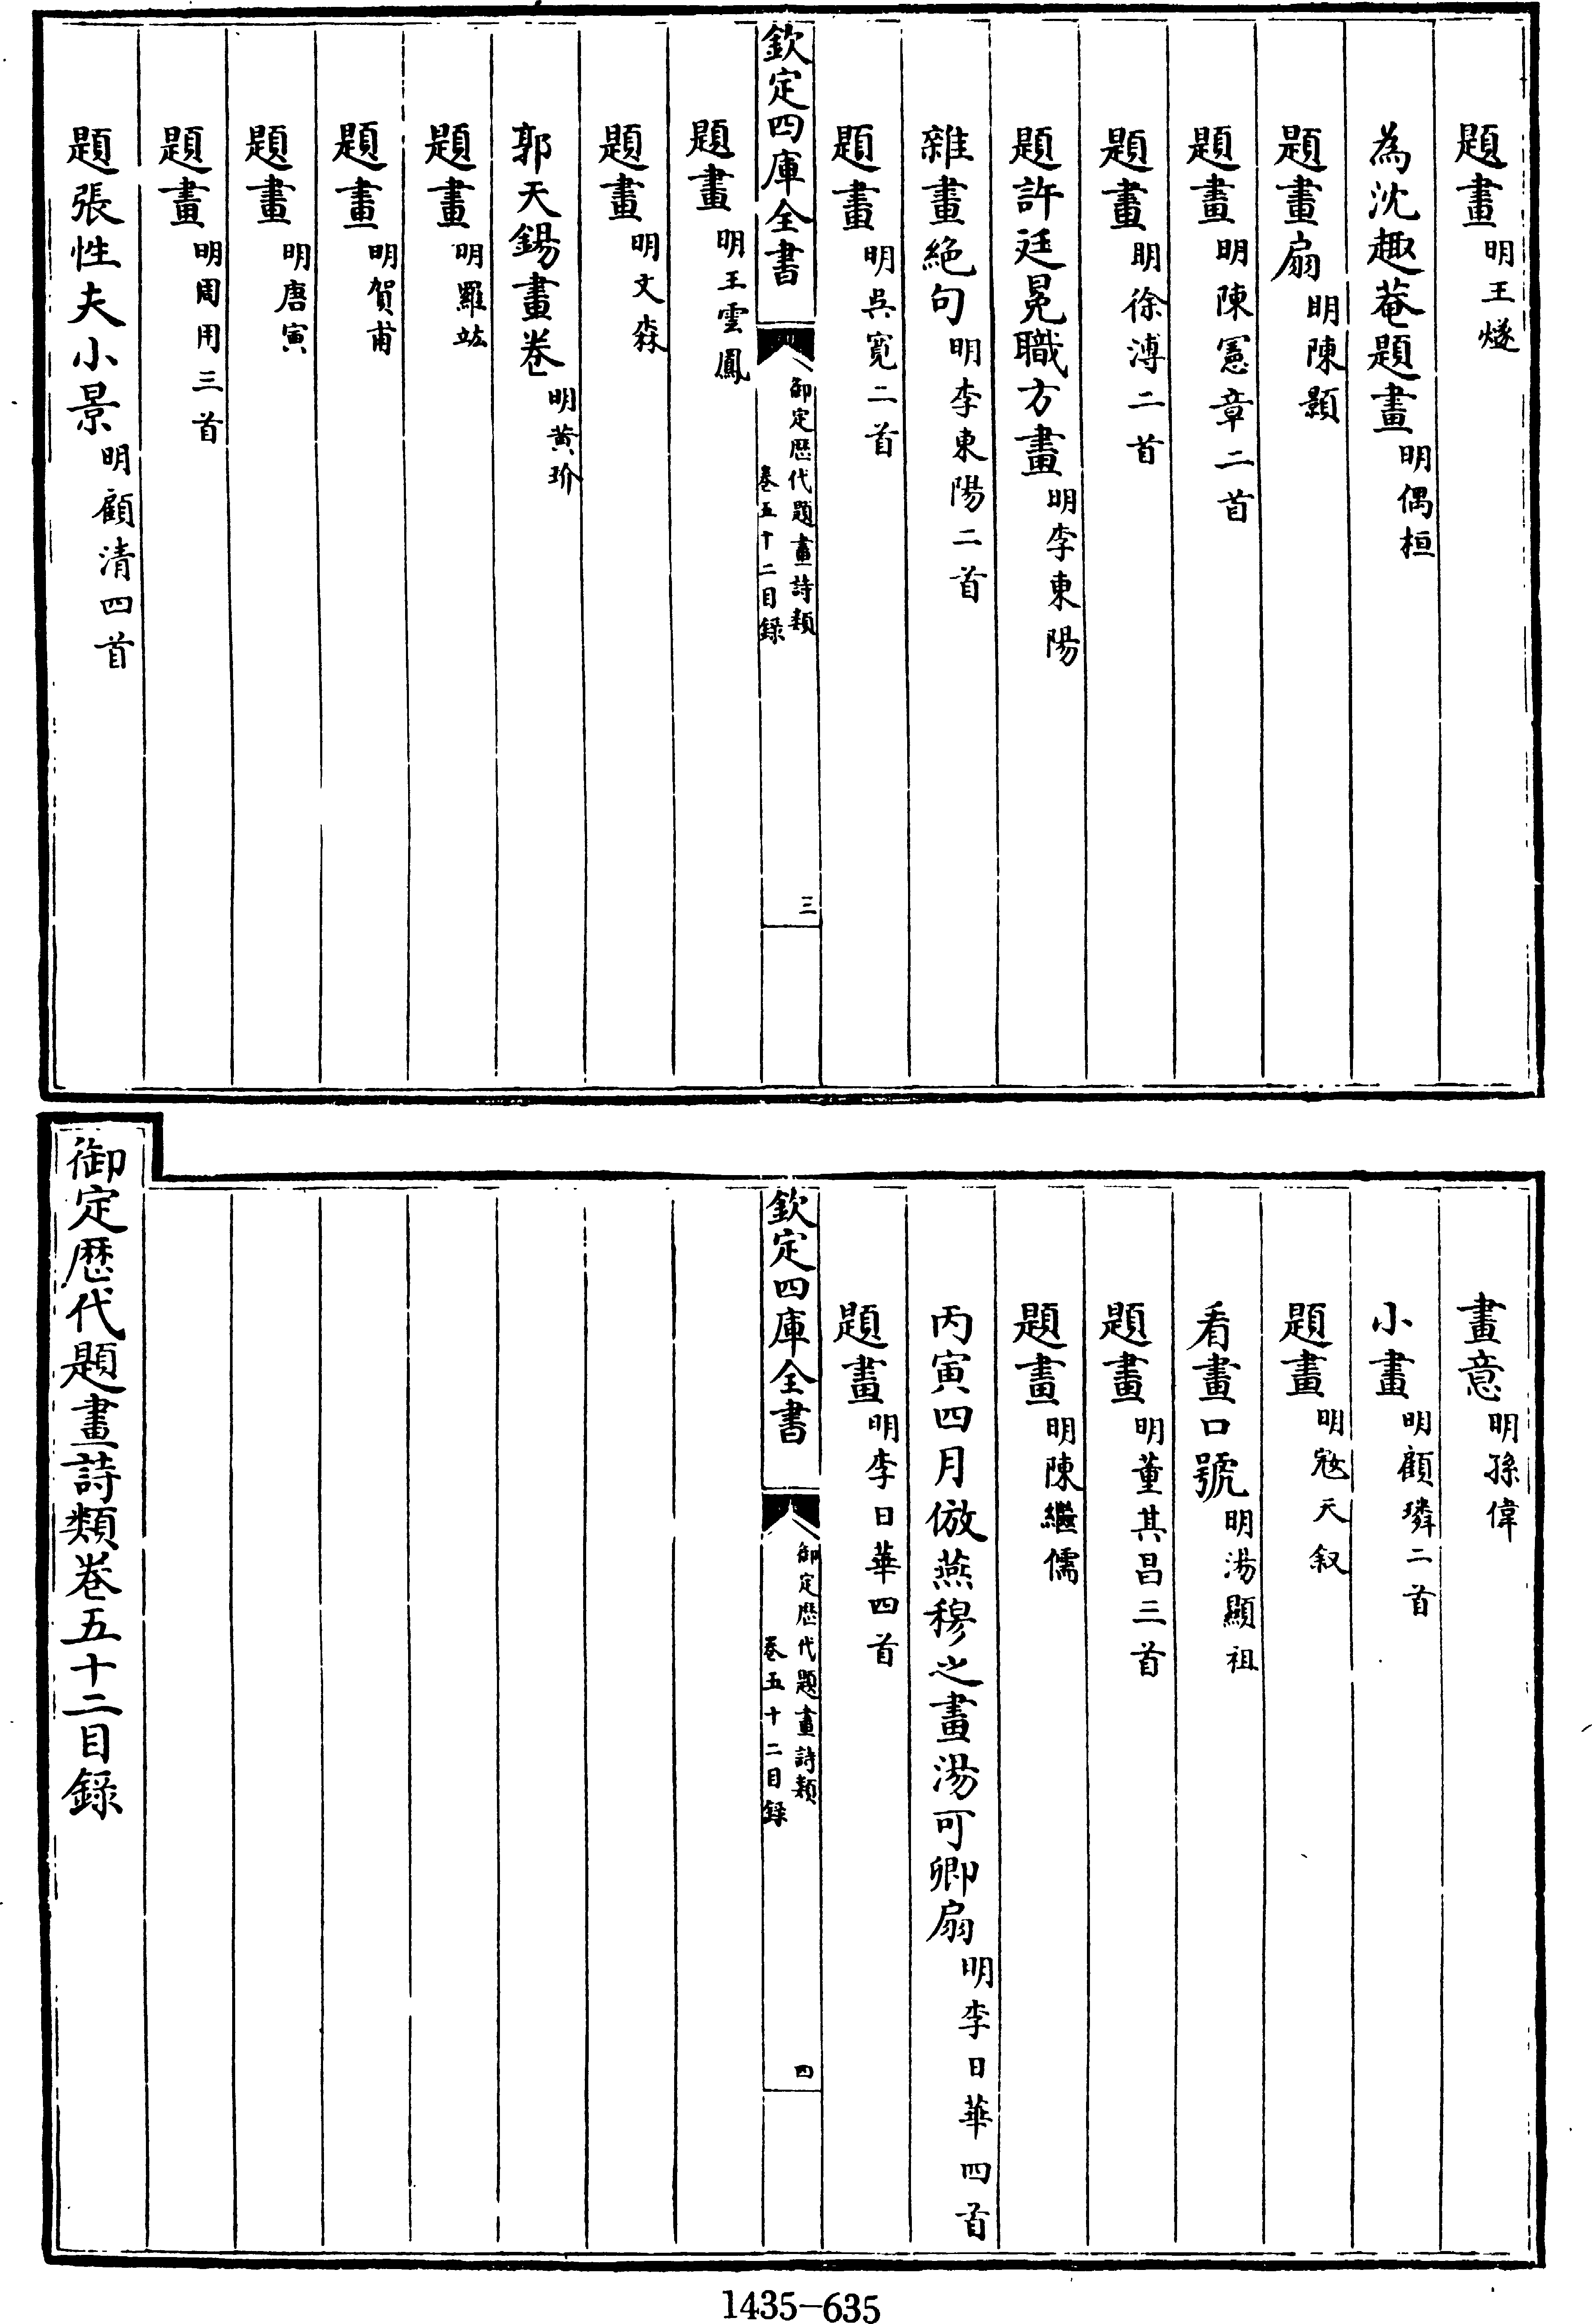 題畫明王燧
為沈趣菴題畫明偶桓
題畫扇明陳顥
題畫明陳憲章二首
題畫明徐溥二首
題許廷冕職方畫明李東陽
雜畫絕句明李東陽二首
題畫明吳寛二首
欽定四庫全書
御定歴代題畫詩類
卷五十二目錄
三
題畫明王雲鳳
題畫明文森
郭天錫畫卷明黃玠
題畫明羅竑
題畫明賀甫
題畫明唐寅
題畫明周用三首
題張性夫小景明顧清四首
畫意明孫偉
小畫明顧璘二首
題畫明寇天叙
看畫口號明湯顯祖
題畫明董其昌三首
題畫明陳繼儒
丙寅四月倣燕穆之畫湯可卿扇明李日華四首
題畫明李日華四首
欽定四庫全書
御定歴代題畫詩類
卷五十二目錄
四
御定歴代題畫詩類卷五十二目錄
1435-635